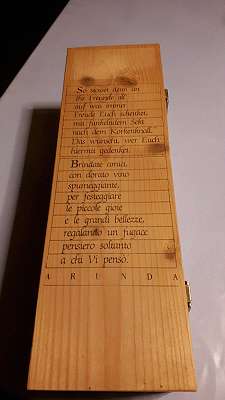 So stosset denn an
Ihr Freunde all
auf was immer
Freude Euch schenket,
mit funkelndem Sekt
nach dem Korkenknall.
Das wünscht, wer Euch
hiermit gedenket.
Brindate amici,
con dorato vino
spumeggiante,
per festeggiare
le piccole gioie
e le grandi bellezze,
regalando un fugace
pensiero soltanto
a chi Vi pensò.
ARUNDA